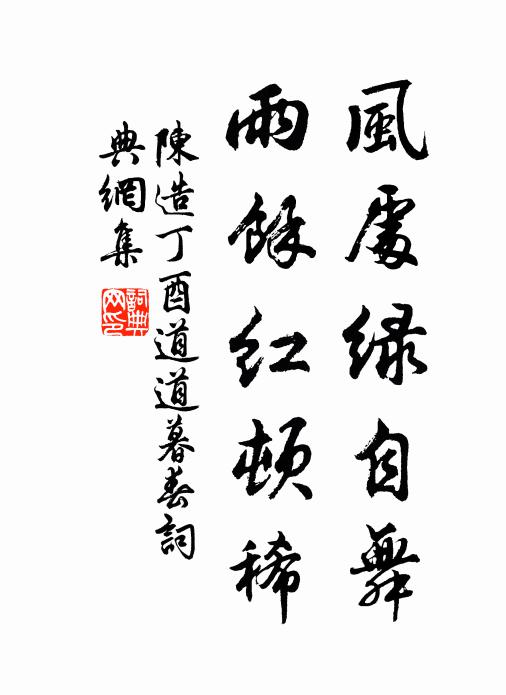 風處綠自舞
雨餘紅頓稀
陳造丁酉道道暮春詞
典網集
詞典網印